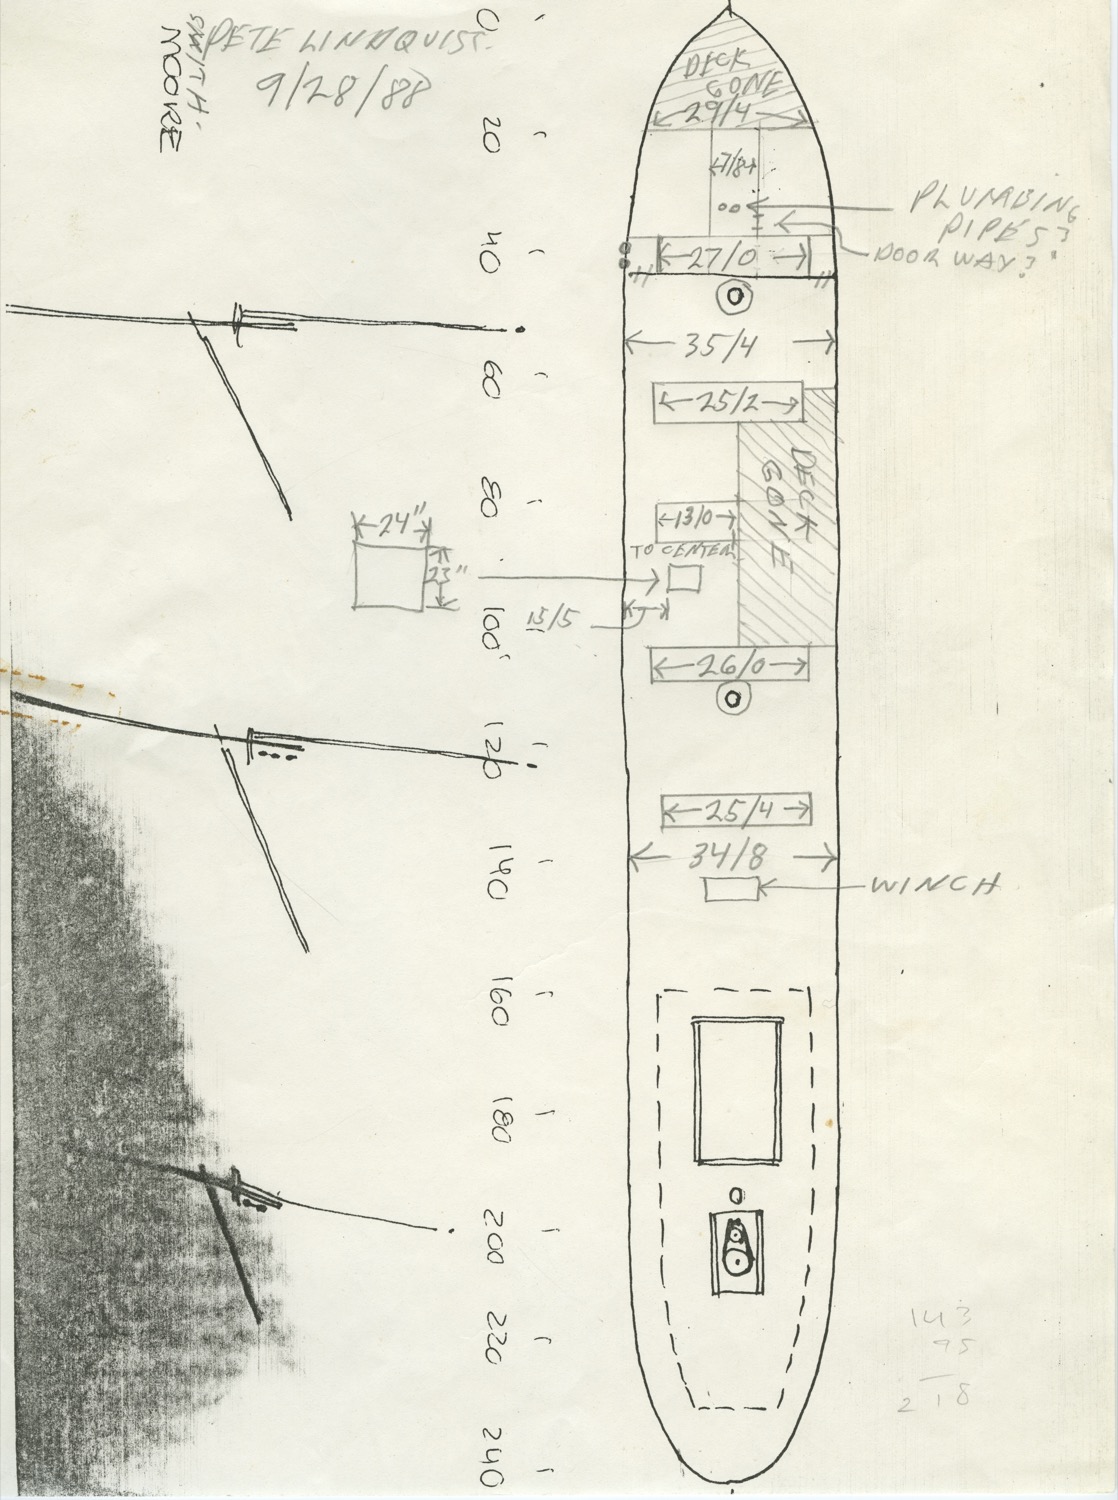 PETE LINDQUIST.
9/28/88
SMITH.
MOORE
0
20
40
60
80
100'
120
140
160
180
200
220
240
DECK
GONE
29/4
7/8
PLUMBING
PIPES?
DOOR WAY?
27/0
35/4
25/2
DECK
GONE
13/0
TO CENTER
24"
23"
15/5
26/0
25/4
34/8
WINCH
143
95
218